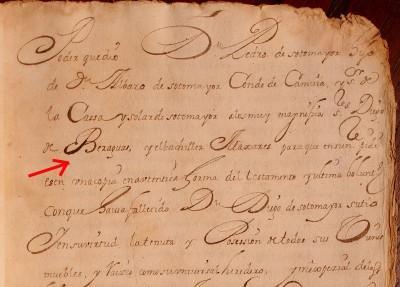 Poder que dio Dn Pedro de sotomayor Hijo
de Dn Albaro de sotomayor Conde de Camiña, y sr de
la Cassa y solar de sotomayor a los muy magnificos ss Diego
de Beraguas, y el bachiller para que en su
esten una copia en autentica forma del testamento y ultima
Con que havia fallecido Dn Diego de sotomayor su tio
Y en su virtud la tenuta y Posesion de todos sus Vienes
muebles, y Raizes como su universal heredero,